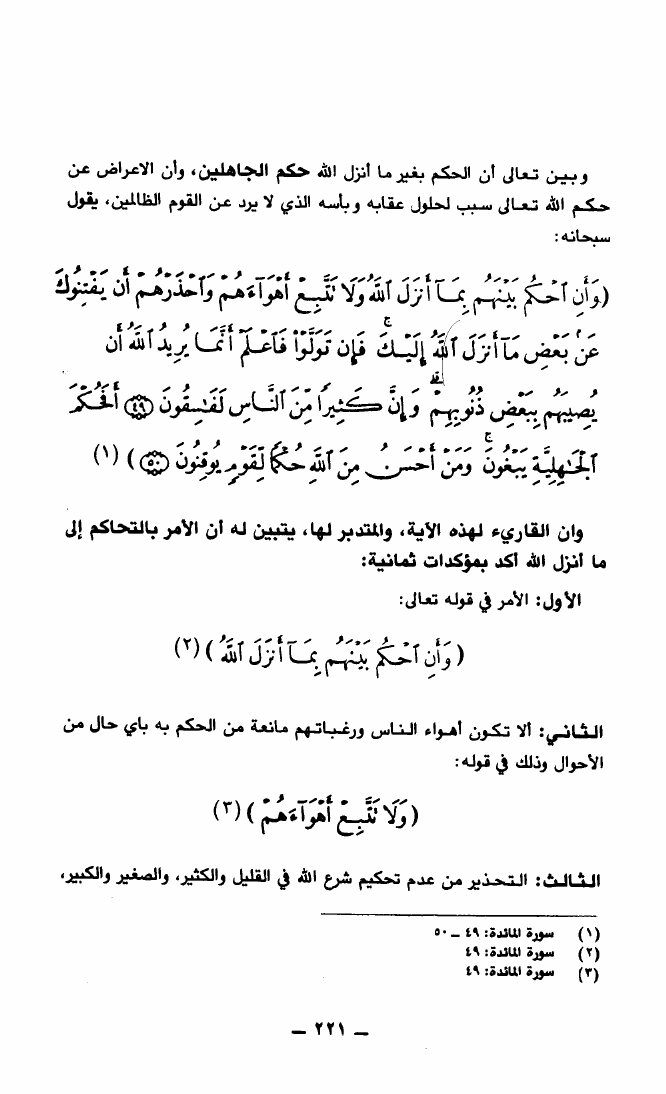 وبين تعالى أن الحكم بغير ما أنزل الله حكم الجاهلين، وأن الاعراض عن
حكم الله تعالى سبب لحلول عقابه وبأسه الذي لا يرد عن القوم الظالمين، يقول
سبحانه:
(وَأَنِ ٱحْكُم بَيْنَهُم بِمَآ أَنزَلَ ٱللَّهُ وَلَا تَتَّبِعْ أَهْوَآءَهُمْ وَٱحْذَرْهُمْ أَن يَفْتِنُوكَ
عَنۢ بَعْضِ مَآ أَنزَلَ ٱللَّهُ إِلَيْكَ ۖ فَإِن تَوَلَّوْا۟ فَٱعْلَمْ أَنَّمَا يُرِيدُ ٱللَّهُ أَن
يُصِيبَهُم بِبَعْضِ ذُنُوبِهِمْ ۗ وَإِنَّ كَثِيرًا مِّنَ ٱلنَّاسِ لَفَـٰسِقُونَ ﴿٤٩﴾ أَفَحُكْمَ
ٱلْجَـٰهِلِيَّةِ يَبْغُونَ ۚ وَمَنْ أَحْسَنُ مِنَ ٱللَّهِ حُكْمًا لِّقَوْمٍ يُوقِنُونَ ﴿٥٠﴾) (١)
وان القاريء لهذه الآية، والمتدبر لها، يتبين له أن الأمر بالتحاكم إلى
ما أنزل الله أكد بمؤكدات ثمانية:
الأول: الأمر في قوله تعالى:
(وَأَنِ ٱحْكُم بَيْنَهُم بِمَآ أَنزَلَ ٱللَّهُ) (٢)
الثاني: ألا تكون أهواء الناس ورغباتهم مانعة من الحكم به باي حال من
الأحوال وذلك في قوله:
(وَلَا تَتَّبِعْ أَهْوَآءَهُمْ) (٣)
الثالث: التحذير من عدم تحكيم شرع الله في القليل والكثير، والصغير والكبير،
(١) سورة المائدة: ٤٩ – ٥٠
(٢) سورة المائدة: ٤٩
(٣) سورة المائدة: ٤٩
– ٢٢١ –